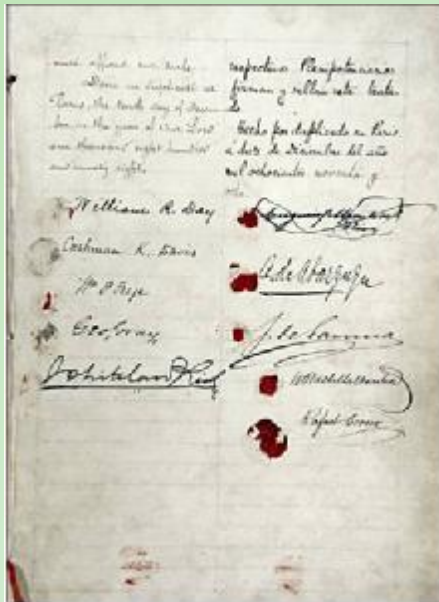 must affixed our seals.
Done in duplicate at
Paris, the tenth day of Decem-
ber, in the year of Our Lord
one thousand eight hundred
and ninety eight.
William R. Day
Cushman K. Davis
Wm P Frye
Geo. Gray
Whitelaw Reid
respectivos Plenipotenciarios
firman y sellan este trata-
do
Hecho por duplicado en Paris
á diez de Diciembre del año
mil ochocientos noventa y
B. de Abarzuza
J. de Garnica
Rafael Cerero